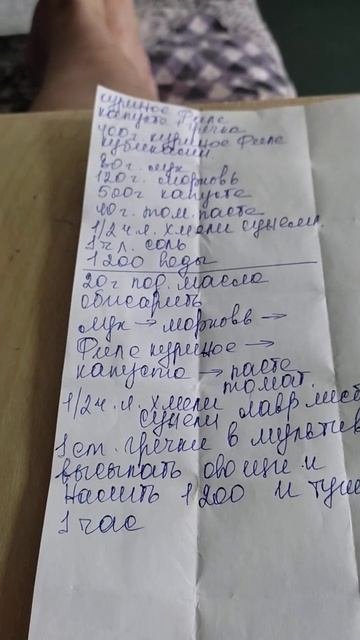 куриное Филе
капуста, гречка
400г. куриное Филе
кубиками
80г. лук
120г. морковь
500г капусте
40г. том. пасте
1/2 ч.л. хмели сунели.
1 ч л. соль
1 200 воды
20г под. масла
обжарить
лук → морковь →
Филе куриное →
капуста → пасте
томат.
1/2 ч. л. хмели
сунели лавр лист
1 ст. гречки в мультив
высыпать овощи и
Налить 1 200 и туш
1 час